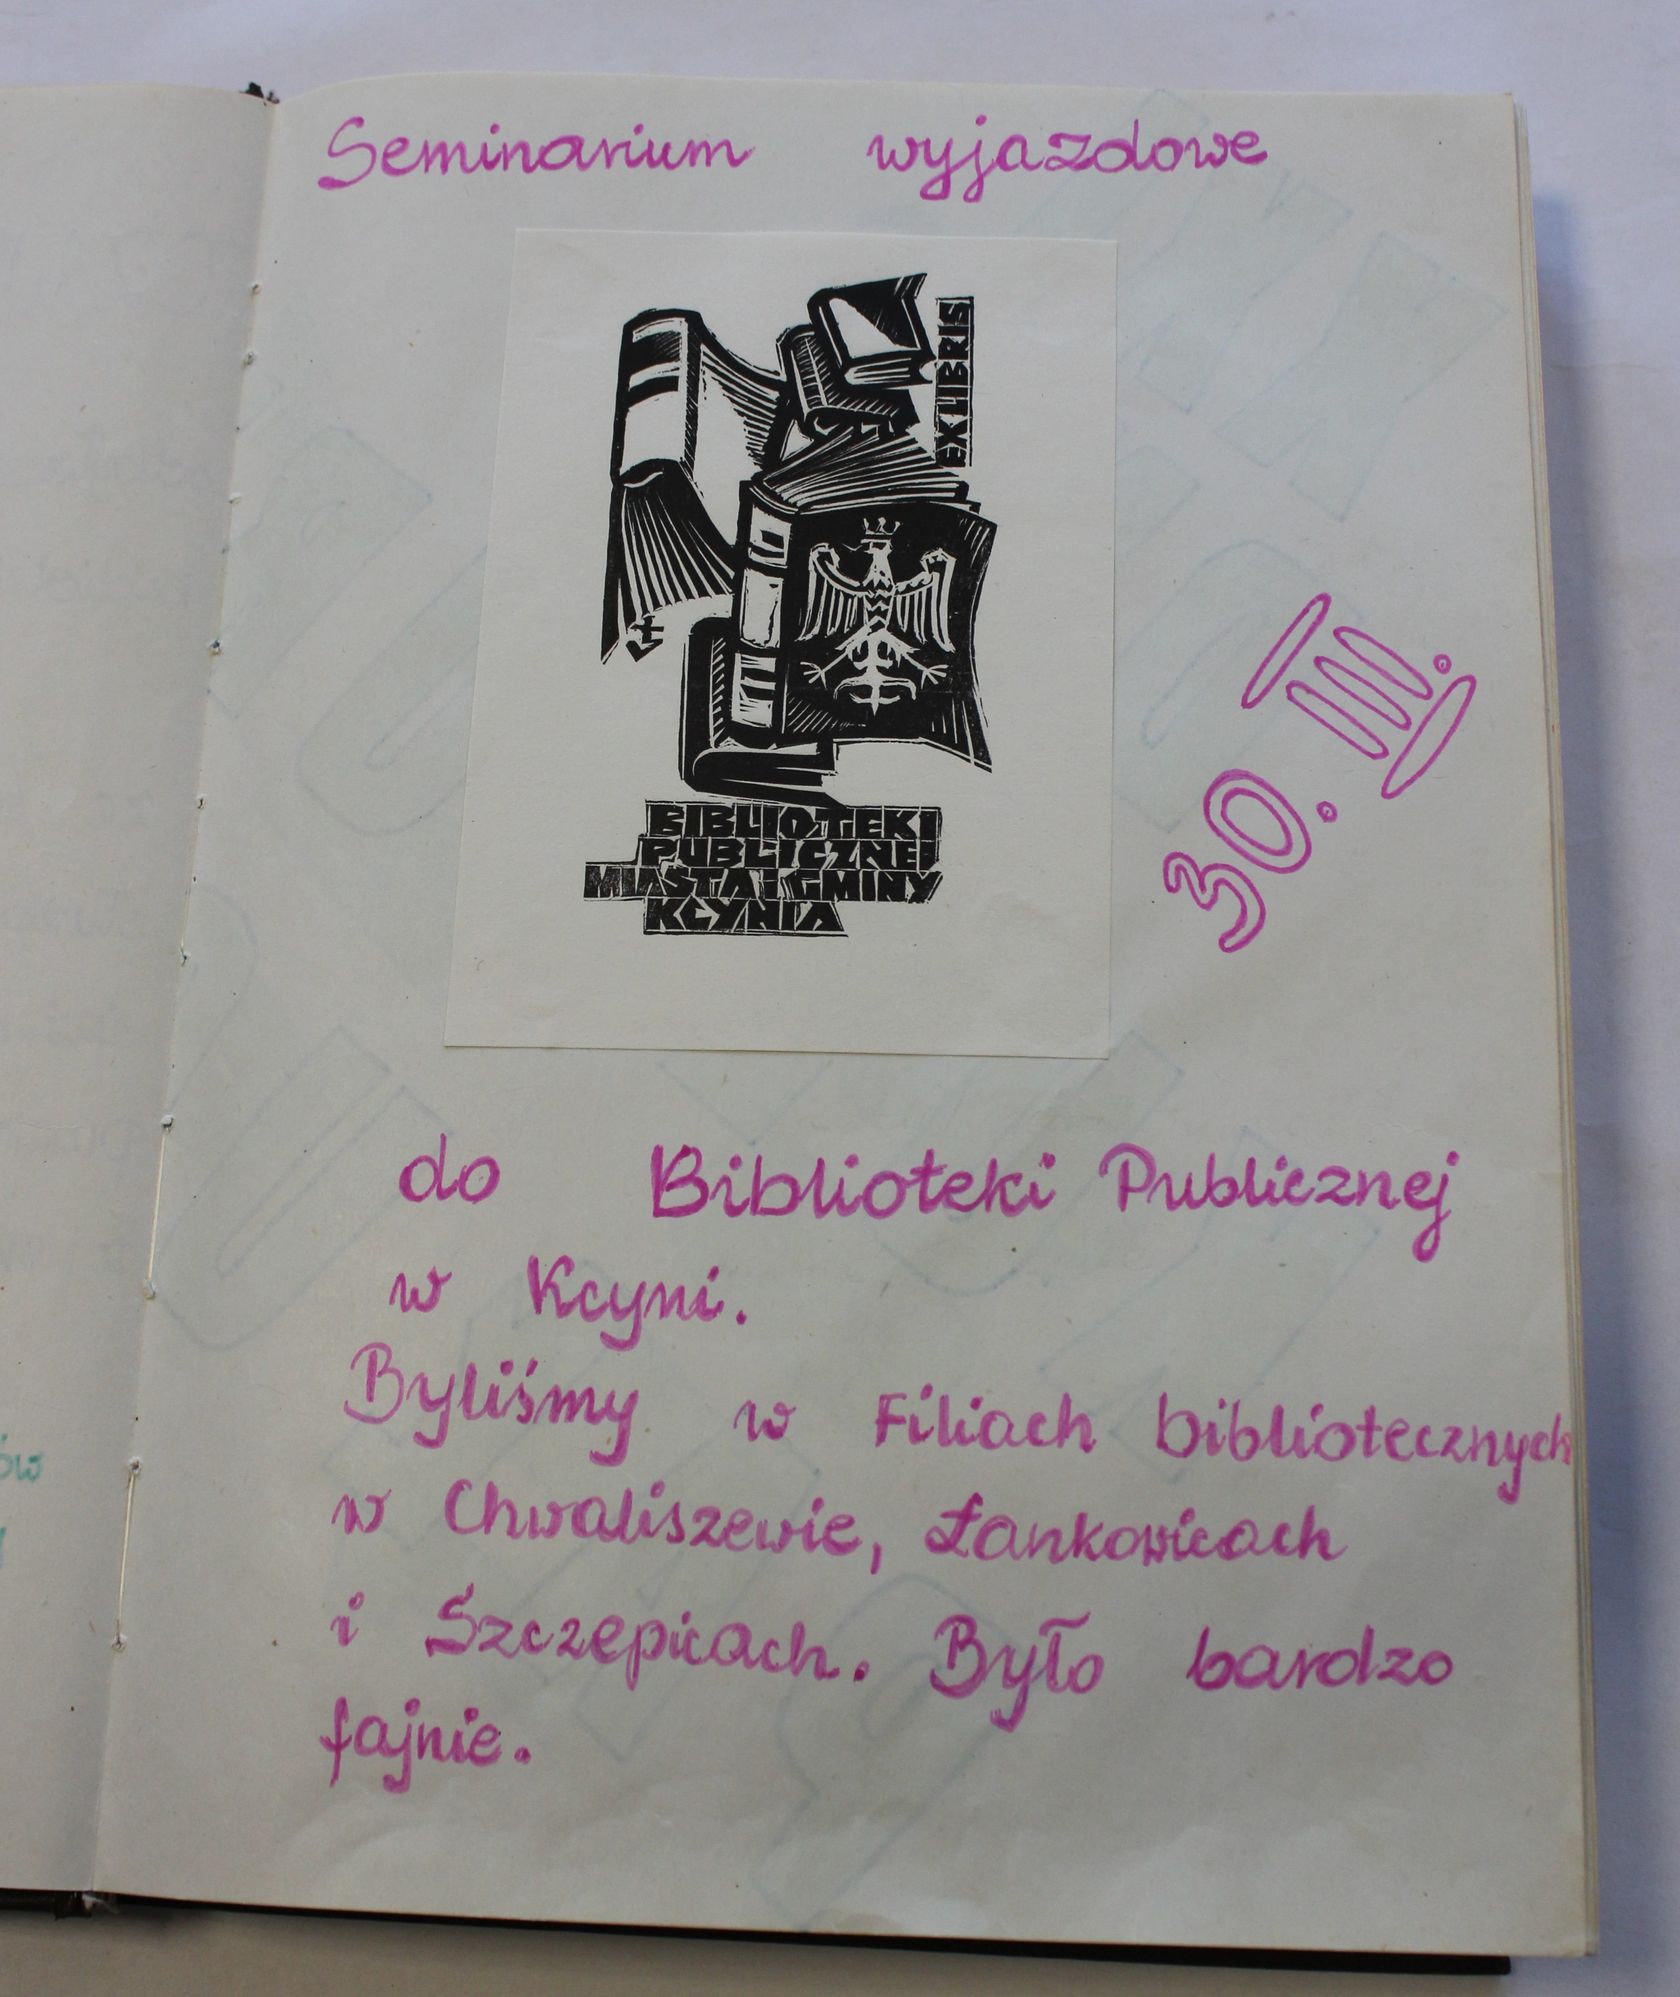 Seminarium wyjazdowe
EX LIBRIS
BIBLIOTEKI
PUBLICZNEJ
MIASTA i GMINY
KCYNIA
30. III.
do Biblioteki Publicznej
w Kcyni.
Byliśmy w Filiach bibliotecznych
w Chwaliszewie, Łankowicach
i Szczepicach. Było bardzo
fajnie.
ów